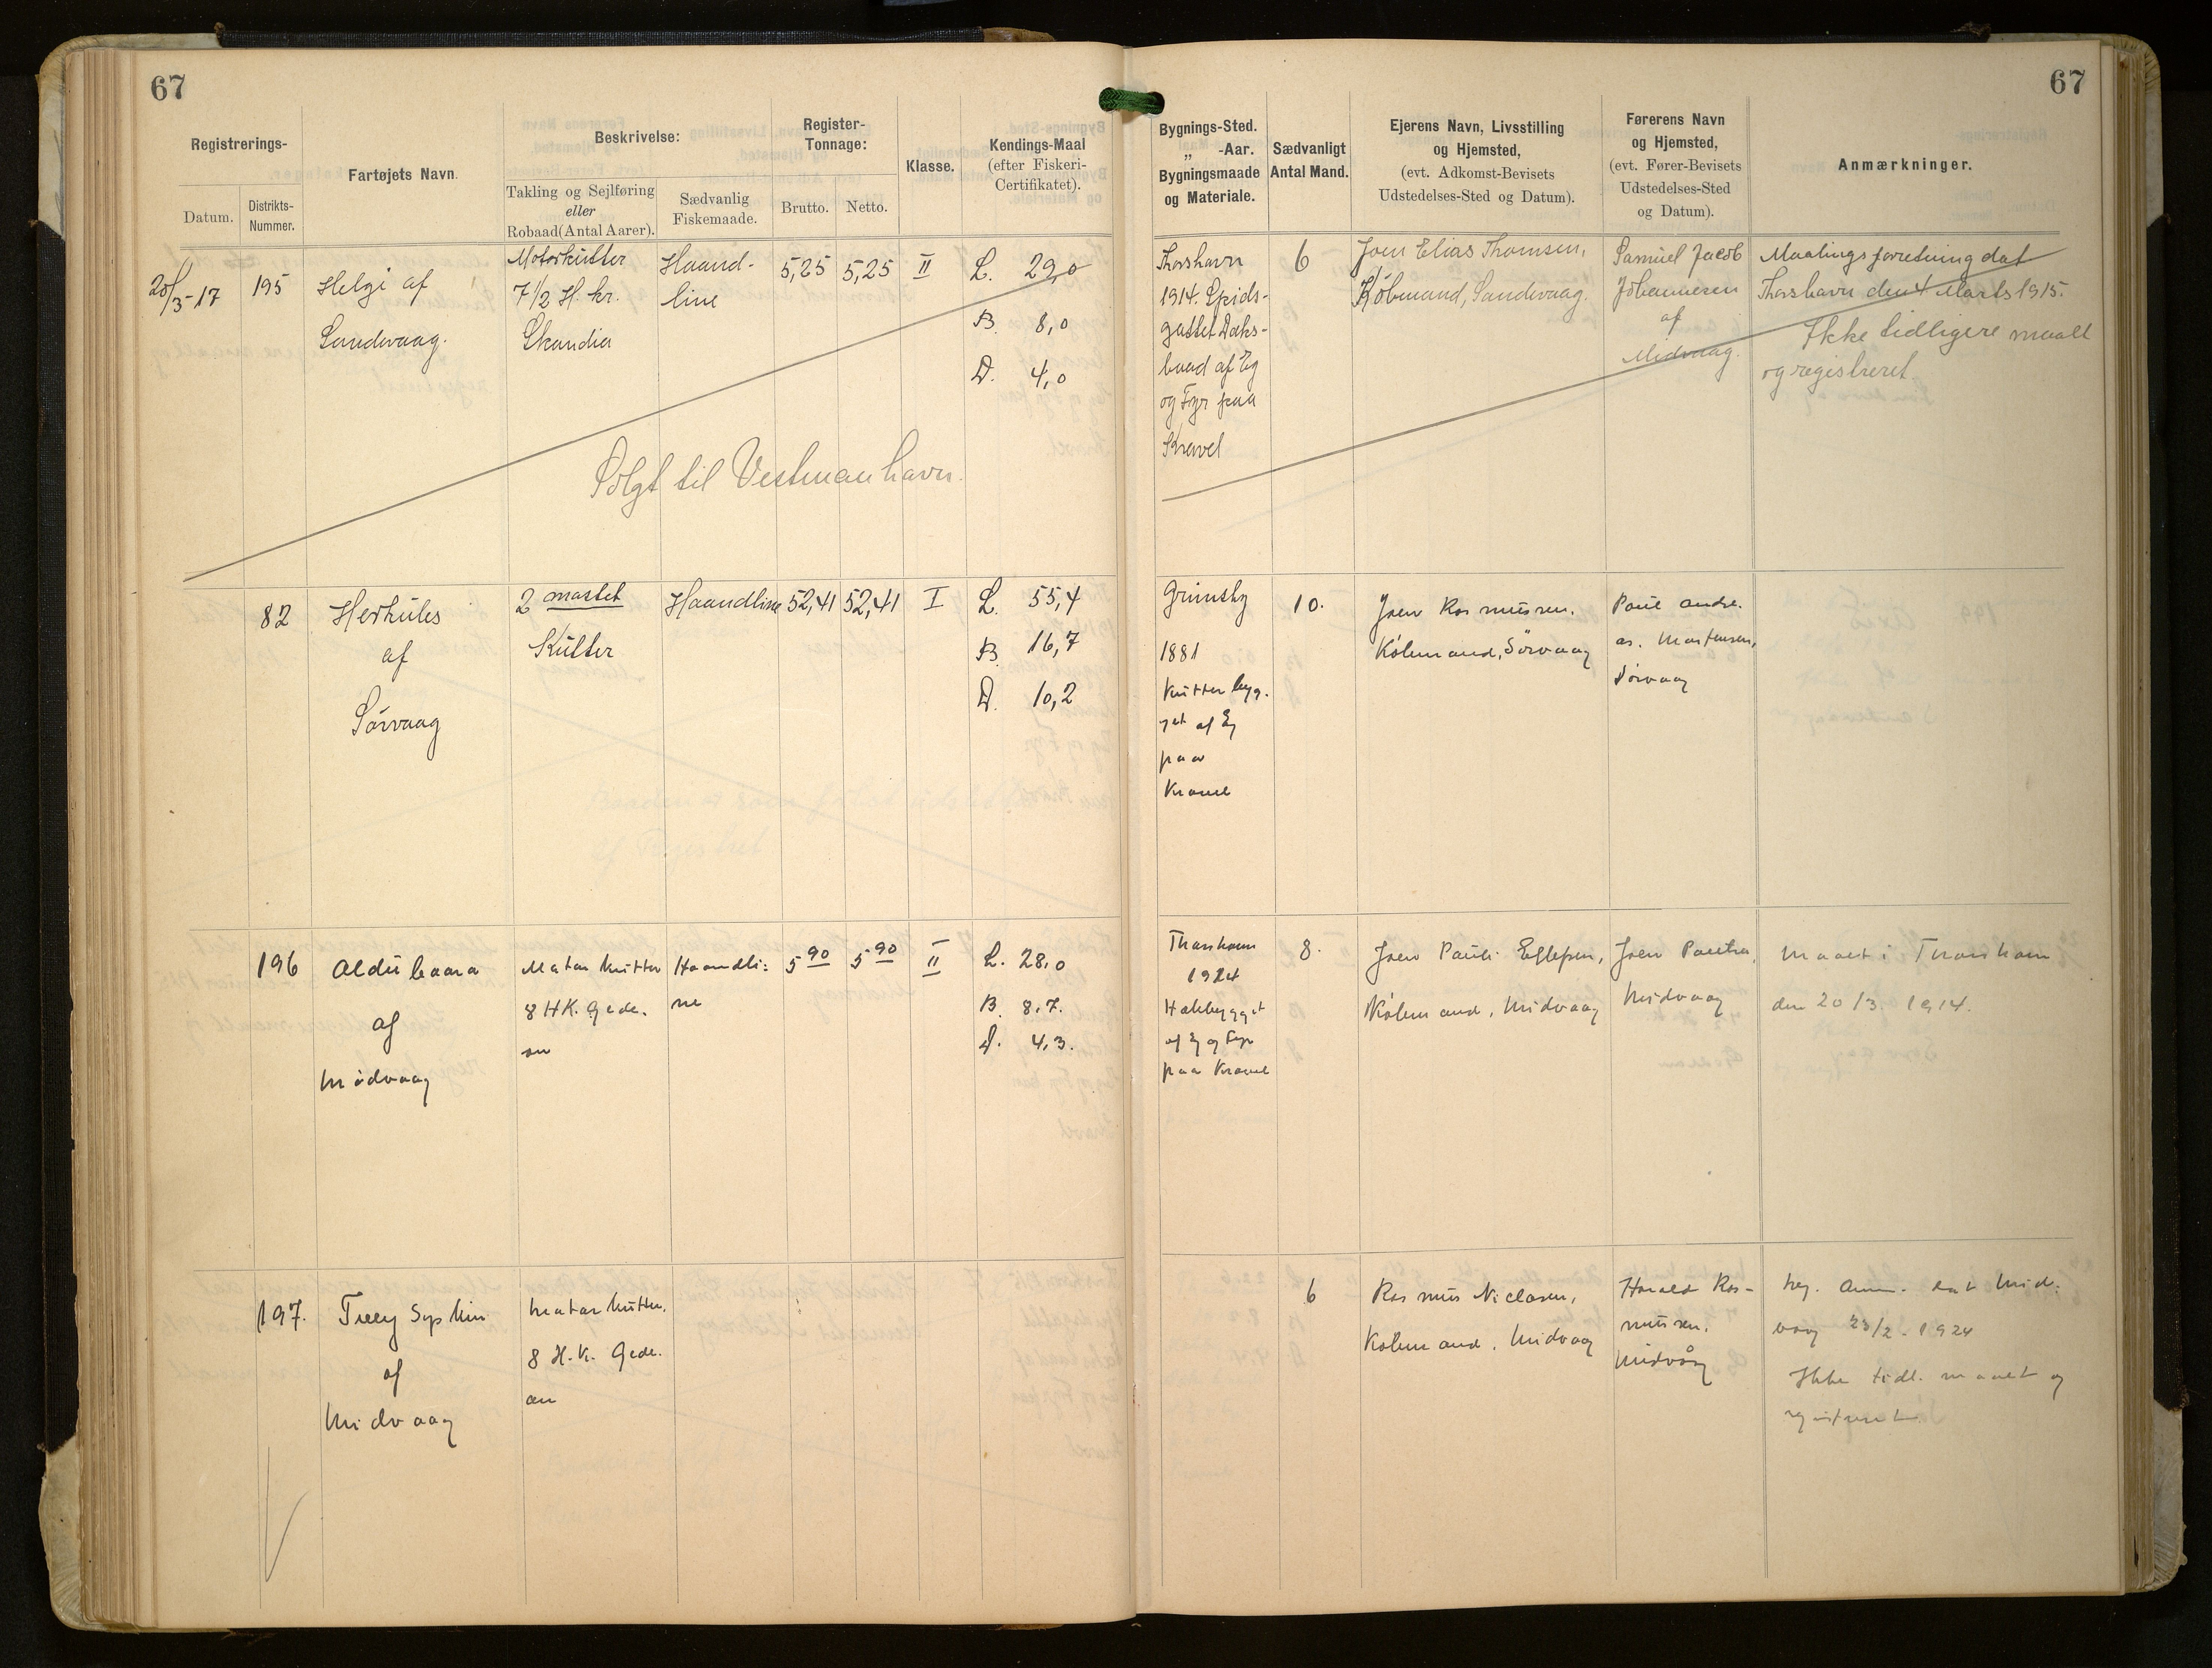 67
67
Registrerings-
Datum.
Distrikts-
Nummer.
Fartøjets Navn.
Beskrivelse:
Takling og Sejlføring
eller
Robaad (Antal Aarer).
Sædvanlig
Fiskemaade.
Register-
Tonnage:
Brutto.
Netto.
Klasse.
Kendings-Maal
(efter Fiskeri-
Certifikatet).
Bygnings-Sted.
„ -Aar.
Bygningsmaade
og Materiale.
Sædvanligt
Antal Mand.
Ejerens Navn, Livsstilling
og Hjemsted,
(evt. Adkomst-Bevisets
Udstedelses-Sted og Datum).
Førerens Navn
og Hjemsted,
(evt. Fører-Bevisets
Udstedelses-Sted
og Datum).
Anmærkninger.
20/3-17
195
Helgi af
Sandevaag.
Motorkutter
7 1/2 H. kr.
Skandia
Haand-
line
5,25
5,25
II
L. 29,0
B. 8,0
D. 4,0
Solgt til Vestmanhavn.
Thorshavn
1914. Spids-
gattet Dæks-
baad af Eg
og Fyr paa
Kravel
6
Joen Elias Thomsen,
Købmand, Sandevaag.
Samuel Jacob
Johannesen
af
Midvaag.
Maalingsforretning dat
Thorshavn den 4 Marts 1915.
Ikke tidligere maalt
og registreret
82
Herkules
af
Sørvaag
2 mastet
Kutter
Haandline
52,41
52,41
I
L. 55,4
B. 16,7
D. 10,2
Grimsby
1881
Kutterbyg-
get af Eg
paa
Kravel
10.
Joen Rasmussen,
Købmand, Sørvaag
Poul Andre-
as Mortensen,
Sørvaag
196
Aldubaara
af
Midvaag
Motorkutter
8 HK. Gede-
on
Haandli:
ne
5 90
5 90
II
L. 28,0
B. 8,7.
D. 4,3.
Thorshavn
1924
Hækbygget
af Eg og Fyr
paa Kravel
8.
Joen Pauli Ellefsen,
Købmand, Midvaag
Joen Poulsen,
Midvaag
Maalt i Thorshavn
den 20/3 1914.
197.
af
Midvaag
Motorkutter.
8 H.K. Gede-
on
6
Rasmus Niclasen,
Købmand, Midvaag
Harald Ras-
mussen,
Midvåg
Reg. Anm. dat Mid-
vaag 23/2 - 1924
Ikke tidl. maalt og
registreret